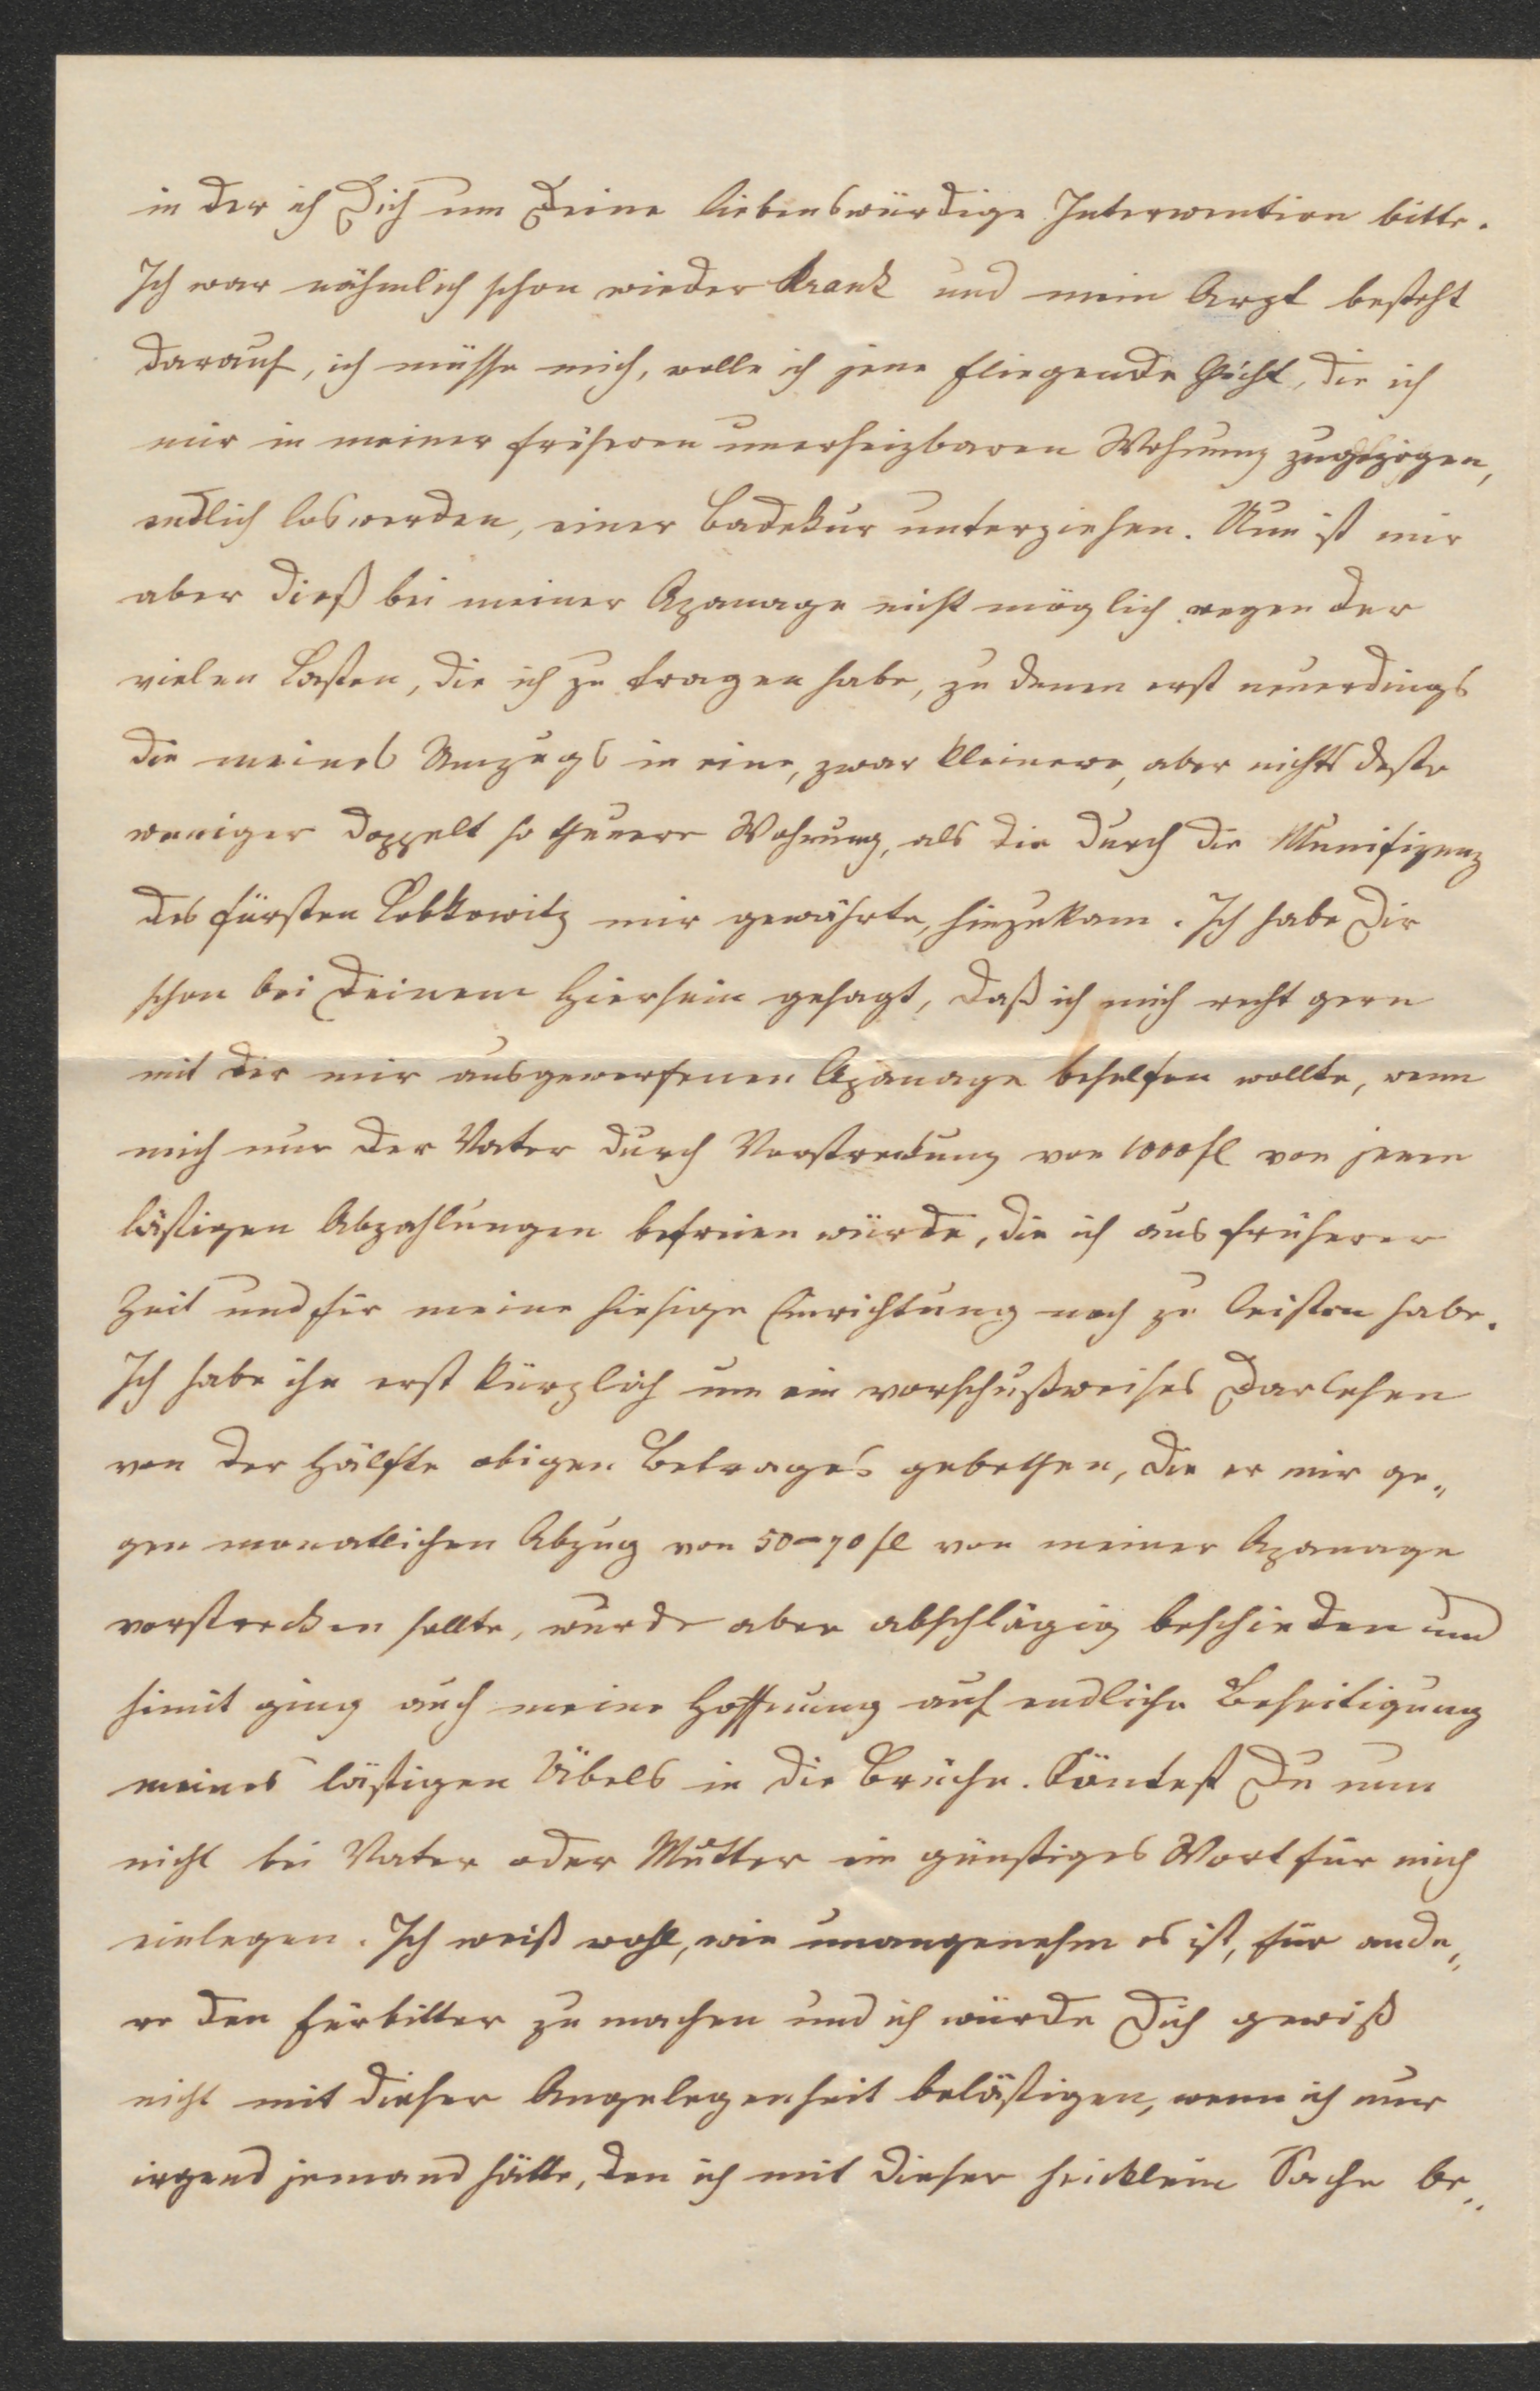 in der ich Dich um Deine liebenswürdige Interwention bitte.
Ich war nähmlich schon wieder krank und mein Arzt besteht
darauf, ich müsse mich, wolle ich jene fliegende Gicht, die ich
mir in meiner früheren unerheizbaren Wohnung zugezogen,
endlich loswerden, einer Badekur unterziehen. Nun ist mir
aber dieß bei meiner Apanage nicht möglich wegen der
vielen Lasten, die ich zu tragen habe, zu denen erst neuerdings
die meines Umzugs in eine, zwar kleinere, aber nichts desto
weniger doppelt so theuere Wohnung, als die durch die Munifizenz
des Fürsten Lobkowitz mir gewährte, hinzukam. Ich habe Dir
schon bei Deinem Hiersein gesagt, daß ich mich recht gern
mit der mir ausgeworfenen Apanage behelfen wollte, wenn
mich nur der Vater durch Vorstreckung von 1000 fl von jenen
lästigen Abzahlungen befreien würde, die ich aus früherer
Zeit und für meine hiesige Einrichtung noch zu leisten habe.
Ich habe ihn erst kürzlich um ein vorschußweises Darlehen
von der Hälfte obigen Betrages gebethen, die er mir ge„
gen monatlichen Abzug von 50–70 fl von meiner Apanage
vorstrecken sollte, wurde aber abschlägig beschieden und
himit ging auch meine Hoffnung auf endliche Beseitigung
meines lästigen Übels in die Brüche. Köntest Du nun
nicht bei Vater oder Mutter ein günstiges Wort für mich
einlegen. Ich weiß wohl, wie unangenehm es ist, für ande„
re den Fürbitter zu machen und ich würde Dich gewiß
nicht mit dieser Angelegenheit belästigen, wenn ich nur
irgend jemand hätte, den ich mit dieser heicklein Sache be„